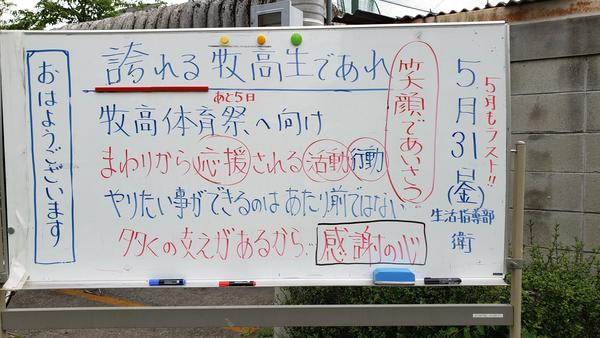 おはようございます
誇れる牧高生であれ
あと5日
牧高体育祭へ向け
まわりから応援される活動行動
やりたい事ができるのはあたり前ではない…
多くの支えがあるから…感謝の心
笑顔であいさつ
5月もラスト!!
5月31日(金)
生活指導部
衛